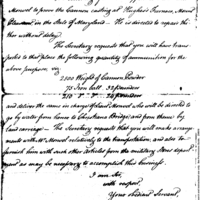 Morvel to prove the Cannon casting at Hughes's Furnace, Mount
Pleasant in the State of Maryland. He is directed to repair thi-
ther without delay.
The Secretary requests that you will have trans-
ported to that place the following quantity of ammunition for the
above purpose, viz
2500 Weight of Cannon Powder
75 Iron ball 32 pounders
210 " " 24 pounders
and deliver the same in charge of said Morvel who will be directed to
go by water from hence to Christiana Bridge, and from thence by
land carriage — The Secretary requests that you will make arrange-
ments with Mr Morvel relatively to the transportation, and also to
furnish him with such other articles from the military Stores depend-
ing as may be necessary to accomplish this business.
I am Sir,
with respect,
Your obedient Servant,